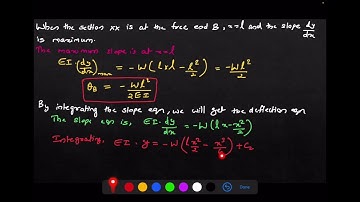 When the section xx is at the free end B, x=l and the slope dy/dx
is maximum.
The maximum slope is at x=l
EI·(dy/dx)max = -W(l×l - l²/2) = -Wl²/2
θB = -Wl²/2EI
By integrating the slope eqn, we will get the deflection eqn
The slope eqn is, EI·dy/dx = -W(lx - x²/2)
Integrating, EI·y = -W(lx²/2 - x³/6) + C2
Done